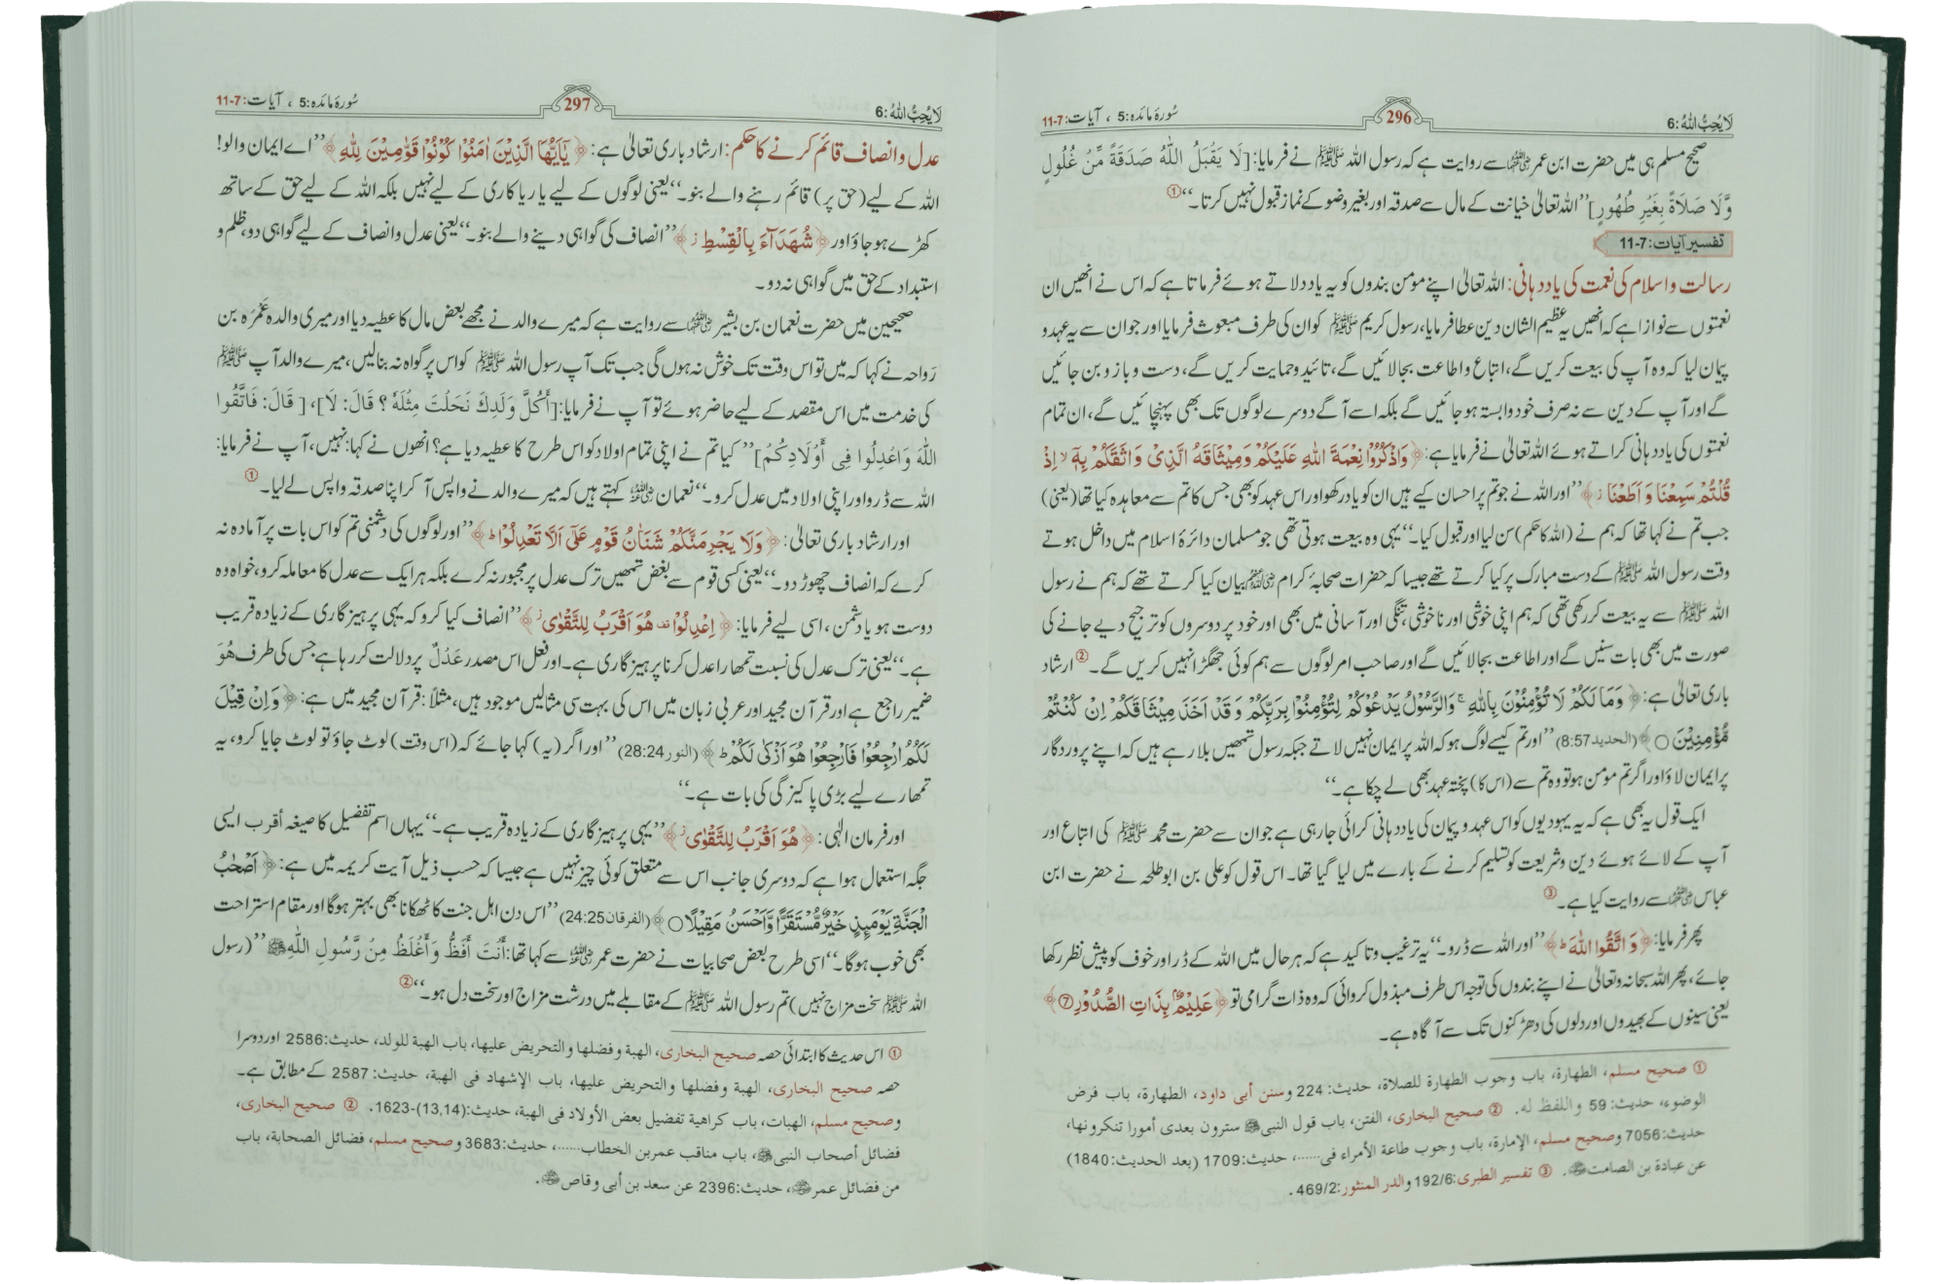 لَا يُحِبُّ اللهُ:6
296
سُورۂ مائدہ:5 ، آیات:7-11
صحیح مسلم ہی میں حضرت ابن عمر رضی اللہ عنہما سے روایت ہے کہ رسول اللہ ﷺ نے فرمایا: [لَا يَقْبَلُ اللّٰهُ صَدَقَةً مِّنْ غُلُولٍ
وَّلَا صَلَاةً بِغَيْرِ طُهُورٍ] ’’اللہ تعالیٰ خیانت کے مال سے صدقہ اور بغیر وضو کے نماز قبول نہیں کرتا۔‘‘①
تفسیر آیات:7-11
رسالت و اسلام کی نعمت کی یاددہانی: اللہ تعالیٰ اپنے مومن بندوں کو یہ یاد دلاتے ہوئے فرماتا ہے کہ اس نے انھیں ان
نعمتوں سے نوازا ہے کہ انھیں یہ عظیم الشان دین عطا فرمایا، رسول کریم ﷺ کو ان کی طرف مبعوث فرمایا اور جو ان سے یہ عہدو
پیمان لیا کہ وہ آپ کی بیعت کریں گے، اتباع و اطاعت بجا لائیں گے، تائید و حمایت کریں گے، دست و بازو بن جائیں
گے اور آپ کے دین سے نہ صرف خود وابستہ ہو جائیں گے بلکہ اسے آگے دوسرے لوگوں تک بھی پہنچائیں گے، ان تمام
نعمتوں کی یاددہانی کراتے ہوئے اللہ تعالیٰ نے فرمایا ہے: ﴿وَاذْكُرُوْا نِعْمَةَ اللّٰهِ عَلَيْكُمْ وَمِيْثَاقَهُ الَّذِيْ وَاثَقَكُمْ بِهٖٓ ۙ اِذْ
قُلْتُمْ سَمِعْنَا وَ اَطَعْنَا ۡ﴾ ’’اور اللہ نے جو تم پر احسان کیے ہیں ان کو یاد رکھو اور اس عہد کو بھی جس کا تم سے معاہدہ کیا تھا (یعنی)
جب تم نے کہا تھا کہ ہم نے (اللہ کا حکم) سن لیا اور قبول کیا۔‘‘ یہی وہ بیعت ہوتی تھی جو مسلمان دائرۂ اسلام میں داخل ہوتے
وقت رسول اللہ ﷺ کے دست مبارک پر کیا کرتے تھے جیسا کہ حضرات صحابۂ کرام رضی اللہ عنہم بیان کیا کرتے تھے کہ ہم نے رسول
اللہ ﷺ سے یہ بیعت کر رکھی تھی کہ ہم اپنی خوشی اور ناخوشی، تنگی اور آسانی میں بھی اور خود پر دوسروں کو ترجیح دیے جانے کی
صورت میں بھی بات سنیں گے اور اطاعت بجا لائیں گے اور صاحب امر لوگوں سے ہم کوئی جھگڑا نہیں کریں گے۔② ارشاد
باری تعالیٰ ہے: ﴿وَمَا لَكُمْ لَا تُؤْمِنُوْنَ بِاللّٰهِ ۚ وَالرَّسُوْلُ يَدْعُوْكُمْ لِتُؤْمِنُوْا بِرَبِّكُمْ وَ قَدْ اَخَذَ مِيْثَاقَكُمْ اِنْ كُنْتُمْ
مُّؤْمِنِيْنَ ○﴾ (الحدید8:57) ’’اور تم کیسے لوگ ہو کہ اللہ پر ایمان نہیں لاتے جبکہ رسول تمھیں بلا رہے ہیں کہ اپنے پروردگار
پر ایمان لاؤ اور اگر تم مومن ہو تو وہ تم سے (اس کا) پختہ عہد بھی لے چکا ہے۔‘‘
ایک قول یہ بھی ہے کہ یہ یہودیوں کو اس عہد و پیمان کی یاددہانی کرائی جا رہی ہے جو ان سے حضرت محمد ﷺ کی اتباع اور
آپ کے لائے ہوئے دین و شریعت کو تسلیم کرنے کے بارے میں لیا گیا تھا۔ اس قول کو علی بن ابو طلحہ نے حضرت ابن
عباس رضی اللہ عنہما سے روایت کیا ہے۔③
پھر فرمایا: ﴿وَ اتَّقُوا اللّٰهَ ۭ﴾ ’’اور اللہ سے ڈرو۔‘‘ یہ ترغیب و تاکید ہے کہ ہر حال میں اللہ کے ڈر اور خوف کو پیش نظر رکھا
جائے، پھر اللہ سبحانہ و تعالیٰ نے اپنے بندوں کی توجہ اس طرف مبذول کروائی کہ وہ ذات گرامی تو ﴿عَلِيْمٌۢ بِذَاتِ الصُّدُوْرِ⑦﴾
یعنی سینوں کے بھیدوں اور دلوں کی دھڑکنوں تک سے آگاہ ہے۔
① صحیح مسلم، الطهارة، باب وجوب الطهارة للصلاة، حدیث: 224 وسنن أبی داود، الطهارة، باب فرض
الوضوء، حدیث: 59 واللفظ له. ② صحیح البخاری، الفتن، باب قول النبیﷺ سترون بعدی أمورا تنکرونها،
حدیث:7056 وصحیح مسلم، الإمارة، باب وجوب طاعة الأمراء فی......، حدیث:1709 (بعد الحدیث:1840)
عن عبادة بن الصامت رضی اللہ عنہ. ③ تفسیر الطبری:192/6 والدر المنثور:469/2.
لَا يُحِبُّ اللهُ:6
297
سُورۂ مائدہ:5 ، آیات:7-11
عدل و انصاف قائم کرنے کا حکم: ارشاد باری تعالیٰ ہے: ﴿يٰٓاَيُّهَا الَّذِيْنَ اٰمَنُوْا كُوْنُوْا قَوّٰمِيْنَ لِلّٰهِ﴾ ’’اے ایمان والو!
اللہ کے لیے (حق پر) قائم رہنے والے بنو۔‘‘ یعنی لوگوں کے لیے یا ریاکاری کے لیے نہیں بلکہ اللہ کے لیے حق کے ساتھ
کھڑے ہو جاؤ اور ﴿شُهَدَآءَ بِالْقِسْطِ ۡ﴾ ’’انصاف کی گواہی دینے والے بنو۔‘‘ یعنی عدل و انصاف کے لیے گواہی دو، ظلم و
استبداد کے حق میں گواہی نہ دو۔
صحیحین میں حضرت نعمان بن بشیر رضی اللہ عنہما سے روایت ہے کہ میرے والد نے مجھے بعض مال کا عطیہ دیا اور میری والدہ عَمْرَہ بن
رَواحہ نے کہا کہ میں تو اس وقت تک خوش نہ ہوں گی جب تک آپ رسول اللہ ﷺ کو اس پر گواہ نہ بنالیں، میرے والد آپ ﷺ
کی خدمت میں اس مقصد کے لیے حاضر ہوئے تو آپ نے فرمایا: [أَكُلَّ وَلَدِكَ نَحَلْتَ مِثْلَهُ؟ قَالَ: لَا]، [قَالَ: فَاتَّقُوا
اللّٰهَ وَاعْدِلُوا فِي أَوْلَادِكُمْ] ’’کیا تم نے اپنی تمام اولاد کو اس طرح کا عطیہ دیا ہے؟ انھوں نے کہا: نہیں، آپ نے فرمایا:
اللہ سے ڈرو اور اپنی اولاد میں عدل کرو۔‘‘ نعمان رضی اللہ عنہ کہتے ہیں کہ میرے والد نے واپس آ کر اپنا صدقہ واپس لے لیا۔①
اور ارشاد باری تعالیٰ: ﴿وَلَا يَجْرِمَنَّكُمْ شَنَاٰنُ قَوْمٍ عَلٰٓى اَلَّا تَعْدِلُوْا ۭ﴾ ’’اور لوگوں کی دشمنی تم کو اس بات پر آمادہ نہ
کرے کہ انصاف چھوڑ دو۔‘‘ یعنی کسی قوم سے بغض تمھیں ترک عدل پر مجبور نہ کرے بلکہ ہر ایک سے عدل کا معاملہ کرو، خواہ وہ
دوست ہو یا دشمن، اسی لیے فرمایا: ﴿اِعْدِلُوْا ۣ هُوَ اَقْرَبُ لِلتَّقْوٰى ۡ﴾ ’’انصاف کیا کرو کہ یہی پرہیزگاری کے زیادہ قریب
ہے۔‘‘ یعنی ترک عدل کی نسبت تمھارا عدل کرنا پرہیزگاری ہے۔ اور فعل اس مصدر عَدْلٌ پر دلالت کر رہا ہے جس کی طرف هُوَ
ضمیر راجع ہے اور قرآن مجید اور عربی زبان میں اس کی بہت سی مثالیں موجود ہیں، مثلاً: قرآن مجید میں ہے: ﴿وَاِنْ قِيْلَ
لَكُمُ ارْجِعُوْا فَارْجِعُوْا هُوَ اَزْكٰى لَكُمْ ۭ﴾ (النور28:24) ’’اور اگر (یہ) کہا جائے کہ (اس وقت) لوٹ جاؤ تو لوٹ جایا کرو، یہ
تمھارے لیے بڑی پاکیزگی کی بات ہے۔‘‘
اور فرمان الٰہی: ﴿هُوَ اَقْرَبُ لِلتَّقْوٰى ۡ﴾ ’’یہی پرہیزگاری کے زیادہ قریب ہے۔‘‘ یہاں اسم تفضیل کا صیغہ أقرب ایسی
جگہ استعمال ہوا ہے کہ دوسری جانب اس سے متعلق کوئی چیز نہیں ہے جیسا کہ حسب ذیل آیت کریمہ میں ہے: ﴿اَصْحٰبُ
الْجَنَّةِ يَوْمَىِٕذٍ خَيْرٌ مُّسْتَقَرًّا وَّاَحْسَنُ مَقِيْلًا ○﴾ (الفرقان24:25) ’’اس دن اہل جنت کا ٹھکانا بھی بہتر ہوگا اور مقام استراحت
بھی خوب ہوگا۔‘‘ اسی طرح بعض صحابیات نے حضرت عمر رضی اللہ عنہ سے کہا تھا: أَنْتَ أَفَظُّ وَأَغْلَظُ مِنْ رَّسُولِ اللّٰهِ ﷺ ’’(رسول
اللہ ﷺ سخت مزاج نہیں) تم رسول اللہ ﷺ کے مقابلے میں درشت مزاج اور سخت دل ہو۔‘‘②
① اس حدیث کا ابتدائی حصہ صحیح البخاری، الهبة وفضلها والتحریض علیها، باب الهبة للولد، حدیث:2586 اور دوسرا
حصہ صحیح البخاری، الهبة وفضلها والتحریض علیها، باب الإشهاد فی الهبة، حدیث: 2587 کے مطابق ہے۔
وصحیح مسلم، الهبات، باب کراهیة تفضیل بعض الأولاد فی الهبة، حدیث:(13,14)-1623. ② صحیح البخاری،
فضائل أصحاب النبیﷺ، باب مناقب عمر بن الخطاب......، حدیث:3683 وصحیح مسلم، فضائل الصحابة، باب
من فضائل عمر رضی اللہ عنہ، حدیث:2396 عن سعد بن أبی وقاص رضی اللہ عنہ.